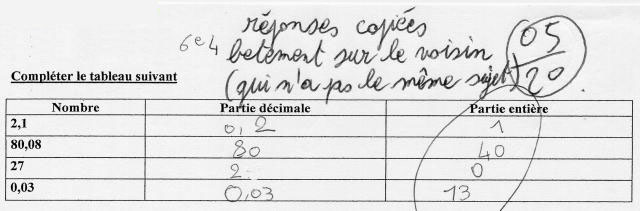 réponses copiées
6e4 betement sur le voisin 05/20
(qui n'a pas le même sujet)
Compléter le tableau suivant
Nombre Partie décimale Partie entière
2,1 0,2 1
80,08 80 40
27 2 0
0,03 0,03 13